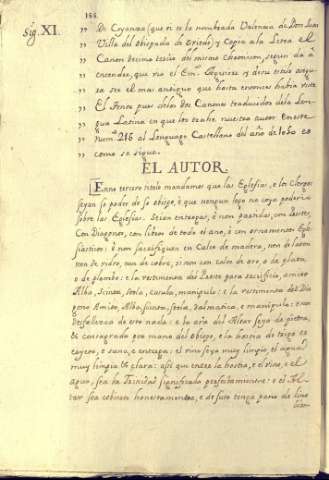 166
Sig. XI.
,, De Coyanza (que es la nombrada Valencia de Don Juan
,, Villa del Obispado de Oviedo) y Copia a la Letra el
,, Canon decimo tercio del mismo Chronicon, segun da à
,, entender, que vio el Em.º Aguirre y de su titulo
,, ser el mas antiguo que hasta entonces habia visto
,, El Tenor pues de los Dos Canones traducidos de la Len-
,, gua Latina en que los
,, num.º 216 al Lenguage Castellano del año de 1060 es
,, como se sigue.
EL AUTOR
Enno tercero titolo mandamos que las Eglesias, e los Clerigos
seyan so poder de so obispo, è que nengun lego no aya poderio
sobre las Eglesias. Seian entregas, è non partidas, con Prestes,
Con Diagonos, con libros de todo el ano, è con ornamentos Egle-
siasticos: è non sacrifiquen en Calez de madera, non de
nen de vidro, nen de cobre, si non con calez de oro, o de plata,
o de plombo: e la vestimenta del Preste para sacrificio, amito
Alba, Scinta, stola, casula, manipula: e la vestimenta del Dia-
gono Amito, Alba, scinta, stola, Dalmatica, e manipula: e non
Desfallezca de esto nada: e la ara del Altar seya de pietra,
è consagrada por mano del Obispo, e la hostia de trigo es-
cogido, e sano, e entrego: el vino seya muy limpio, el agua
muy limpia è clara: assi que entre la hostia, e el vino, e el
agua, sea la Trinidad significada perfectamente: e el Al-
tar sea cobierto honestamente, e de suso tenga pano de lino